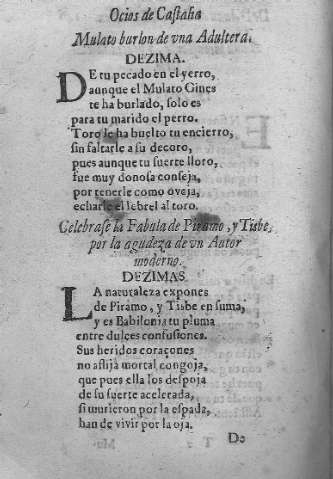 Ocios de Castalia
Mulato burlon de vna Adultera.
DEZIMA.
DE tu pecado en el yerro,
aunque el Mulato Gines
te ha burlado, solo es
para tu marido el perro.
Toro le ha buelto tu encierro,
sin faltarle a su decoro,
pues aunque tu suerte lloro,
fue muy donosa conseja,
por tenerle como oveja,
echarle el lebrel al toro.
Celebrase la Fabula de Piramo, y Tisbe,
por la agudeza de vn Autor
moderno.
DEZIMAS.
LA naturaleza expones
de Piramo, y Tisbe en suma,
y es Babilonia tu pluma
entre dulçes confusiones.
Sus heridos coraçones
no aflija mortal congoja,
que pues ella los despoja
de su suerte acelerada,
si murieron por la espada,
han de vivir por la oja.
De